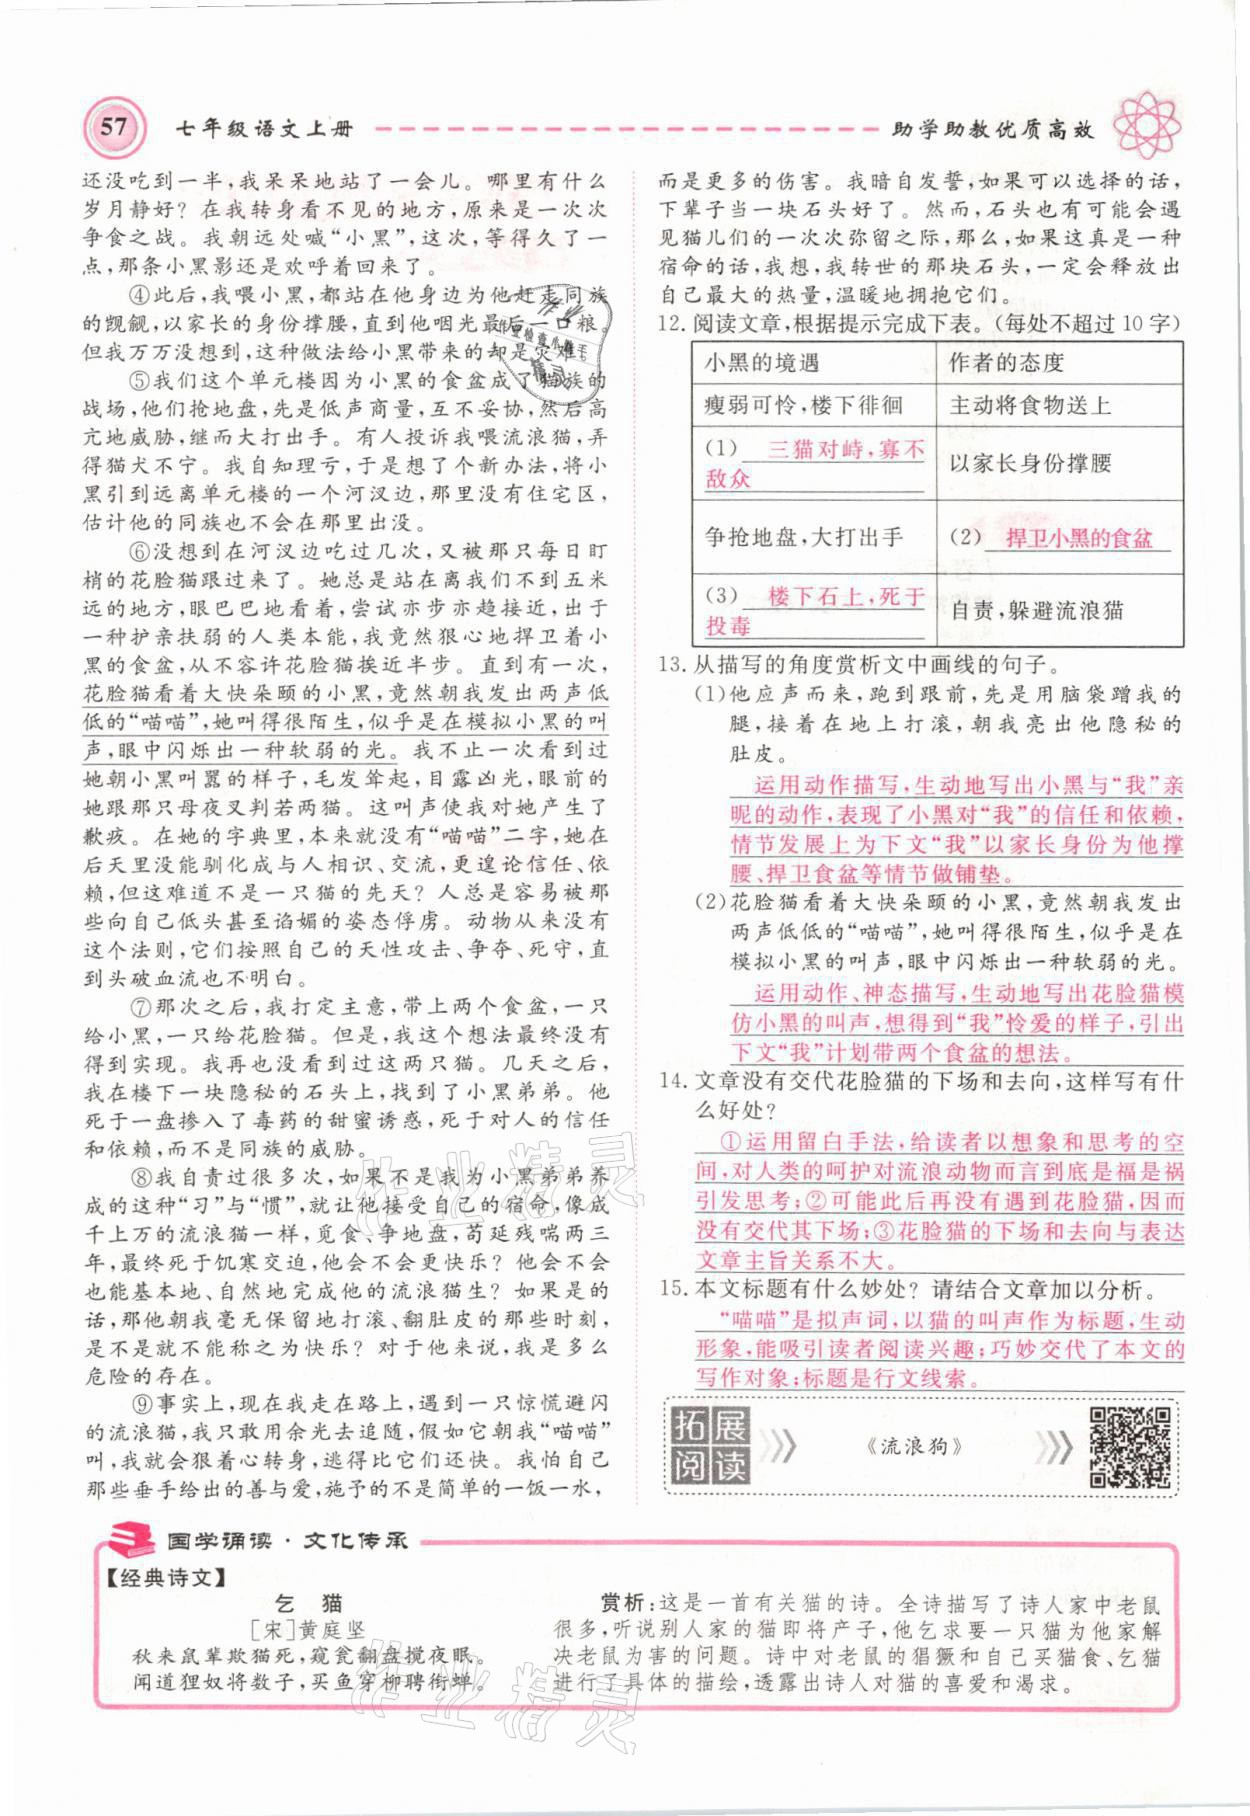 57
七年级语文上册
助学助教优质高效
还没吃到一半,我呆呆地站了一会儿。哪里有什么
岁月静好?在我转身看不见的地方,原来是一次次
争食之战。我朝远处喊“小黑”,这次,等得久了一
点,那条小黑影还是欢呼着回来了。
④此后,我喂小黑,都站在他身边为他赶走同族
的觊觎,以家长的身份撑腰,直到他咽光最后一口粮。
但我万万没想到,这种做法给小黑带来的却是灾难。
⑤我们这个单元楼因为小黑的食盆成了猫族的
战场,他们抢地盘,先是低声商量,互不妥协,然后高
亢地威胁,继而大打出手。有人投诉我喂流浪猫,弄
得猫犬不宁。我自知理亏,于是想了个新办法,将小
黑引到远离单元楼的一个河汊边,那里没有住宅区,
估计他的同族也不会在那里出没。
⑥没想到在河汊边吃过几次,又被那只每日盯
梢的花脸猫跟过来了。她总是站在离我们不到五米
远的地方,眼巴巴地看着,尝试亦步亦趋接近,出于
一种护亲扶弱的人类本能,我竟然狠心地捍卫着小
黑的食盆,从不容许花脸猫挨近半步。直到有一次,
花脸猫看着大快朵颐的小黑,竟然朝我发出两声低
低的“喵喵”,她叫得很陌生,似乎是在模拟小黑的叫
声,眼中闪烁出一种软弱的光。我不止一次看到过
她朝小黑叫嚣的样子,毛发耸起,目露凶光,眼前的
她跟那只母夜叉判若两猫。这叫声使我对她产生了
歉疚。在她的字典里,本来就没有“喵喵”二字,她在
后天里没能驯化成与人相识、交流,更遑论信任、依
赖,但这难道不是一只猫的先天?人总是容易被那
些向自己低头甚至谄媚的姿态俘虏。动物从来没有
这个法则,它们按照自己的天性攻击、争夺、死守,直
到头破血流也不明白。
⑦那次之后,我打定主意,带上两个食盆,一只
给小黑,一只给花脸猫。但是,我这个想法最终没有
得到实现。我再也没看到过这两只猫。几天之后,
我在楼下一块隐秘的石头上,找到了小黑弟弟。他
死于一盘掺入了毒药的甜蜜诱惑,死于对人的信任
和依赖,而不是同族的威胁。
⑧我自责过很多次,如果不是我为小黑弟弟养
成的这种“习”与“惯”,就让他接受自己的宿命,像成
千上万的流浪猫一样,觅食、争地盘,苟延残喘两三
年,最终死于饥寒交迫,他会不会更快乐?他会不会
也能基本地、自然地完成他的流浪猫生?如果是的
话,那他朝我毫无保留地打滚、翻肚皮的那些时刻,
是不是就不能称之为快乐?对于他来说,我是多么
危险的存在。
⑨事实上,现在我走在路上,碰到一只惊慌避闪
的流浪猫,我只敢用余光去追随,假如它朝我“喵喵”
叫,我就会狠着心转身,逃得比它们还快。我怕自己
那些垂手给出的善与爱,施予的不是简单的一饭一水,
而是更多的伤害。我暗自发誓,如果可以选择的话,
下辈子当一块石头好了。然而,石头也有可能会遇
见猫儿们的一次次弥留之际,那么,如果这真是一种
宿命的话,我想,我转世的那块石头,一定会释放出
自己最大的热量,温暖地拥抱它们。
12.阅读文章,根据提示完成下表。(每处不超过10字)
小黑的境遇 作者的态度
瘦弱可怜,楼下徘徊 主动将食物送上
(1) 三猫对峙,寡不
敌众
以家长身份撑腰
争抢地盘,大打出手 (2) 捍卫小黑的食盆
(3) 楼下石上,死于
投毒
自责,躲避流浪猫
13.从描写的角度赏析文中画线的句子。
(1)他应声而来,跑到跟前,先是用脑袋蹭我的
腿,接着在地上打滚,朝我亮出他隐秘的
肚皮。
运用动作描写,生动地写出小黑与“我”亲
昵的动作,表现了小黑对“我”的信任和依赖,
情节发展上为下文“我”以家长身份为他撑
腰、捍卫食盆等情节做铺垫。
(2)花脸猫看着大快朵颐的小黑,竟然朝我发出
两声低低的“喵喵”,她叫得很陌生,似乎是在
模拟小黑的叫声,眼中闪烁出一种软弱的光。
运用动作、神态描写,生动地写出花脸猫模
仿小黑的叫声,想得到“我”怜爱的样子,引出
下文“我”计划带两个食盆的想法。
14.文章没有交代花脸猫的下场和去向,这样写有什
么好处?
①运用留白手法,给读者以想象和思考的空
间,对人类的呵护对流浪动物而言到底是福是祸
引发思考;②可能此后再没有遇到花脸猫,因而
没有交代其下场;③花脸猫的下场和去向与表达
文章主旨关系不大。
15.本文标题有什么妙处?请结合文章加以分析。
“喵喵”是拟声词,以猫的叫声作为标题,生动
形象,能吸引读者阅读兴趣;巧妙交代了本文的
写作对象;标题是行文线索。
拓展
阅读
《流浪狗》
国学诵读·文化传承
【经典诗文】
乞 猫
[宋]黄庭坚
秋来鼠辈欺猫死,窥瓮翻盘搅夜眠。
闻道狸奴将数子,买鱼穿柳聘衔蝉。
赏析:这是一首有关猫的诗。全诗描写了诗人家中老鼠
很多,听说别人家的猫即将产子,他乞求要一只猫为他家解
决老鼠为害的问题。诗中对老鼠的猖獗和自己买猫食、乞猫
进行了具体的描绘,透露出诗人对猫的喜爱和渴求。
作业精灵
作业精灵